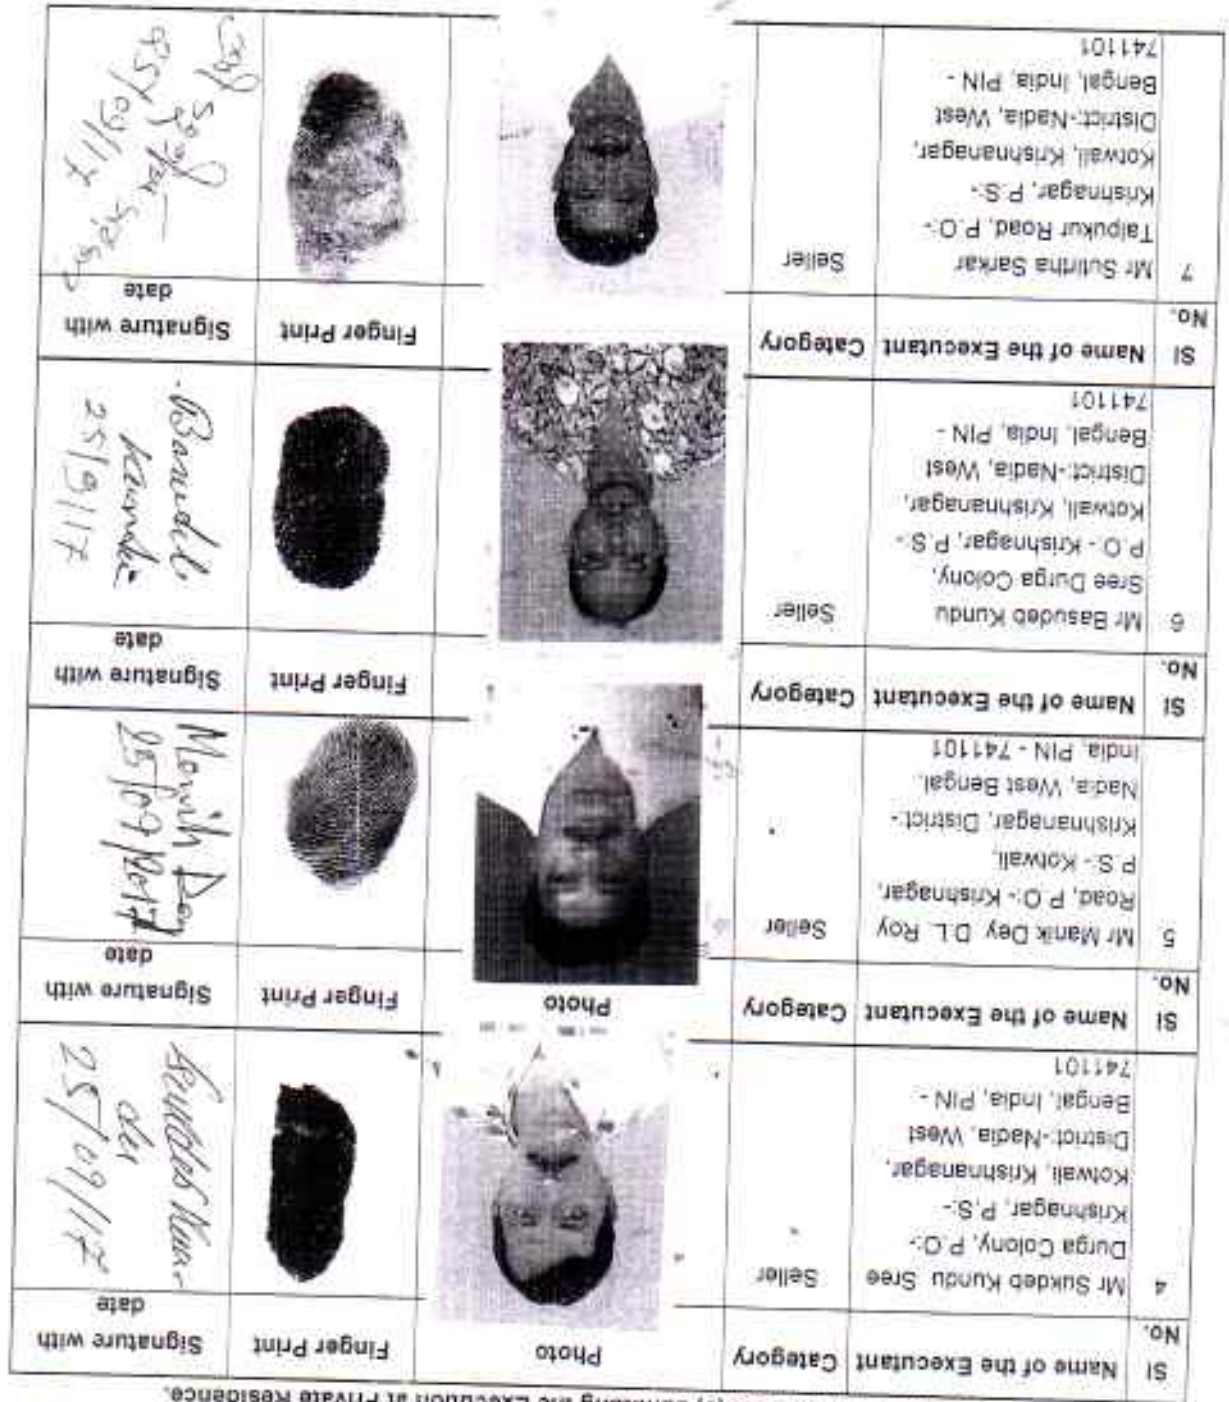 admitting the Execution at Private Residence.
Sl No. Name of the Executant Category Photo Finger Print Signature with date
4 Mr Sukdeb Kundu Sree Seller
Durga Colony, P.O:-
Krishnagar, P.S:-
Kotwali, Krishnanagar,
District:-Nadia, West
Bengal, India, PIN -
741101
25/09/17
Sl No. Name of the Executant Category Photo Finger Print Signature with date
5 Mr Manik Dey D.L. Roy Seller
Road, P.O:- Krishnagar,
P.S:- Kotwali,
Krishnanagar, District:-
Nadia, West Bengal,
India, PIN - 741101
Manik Dey
25/09/2017
Sl No. Name of the Executant Category Finger Print Signature with date
6 Mr Basudeb Kundu Seller
Sree Durga Colony,
P.O:- Krishnagar, P.S:-
Kotwali, Krishnanagar,
District:-Nadia, West
Bengal, India, PIN -
741101
Basudeb
Kundu
25/9/17
Sl No. Name of the Executant Category Finger Print Signature with date
7 Mr Sutirtha Sarkar Seller
Talpukur Road, P.O:-
Krishnagar, P.S:-
Kotwali, Krishnanagar,
District:-Nadia, West
Bengal, India, PIN -
741101
25/09/17